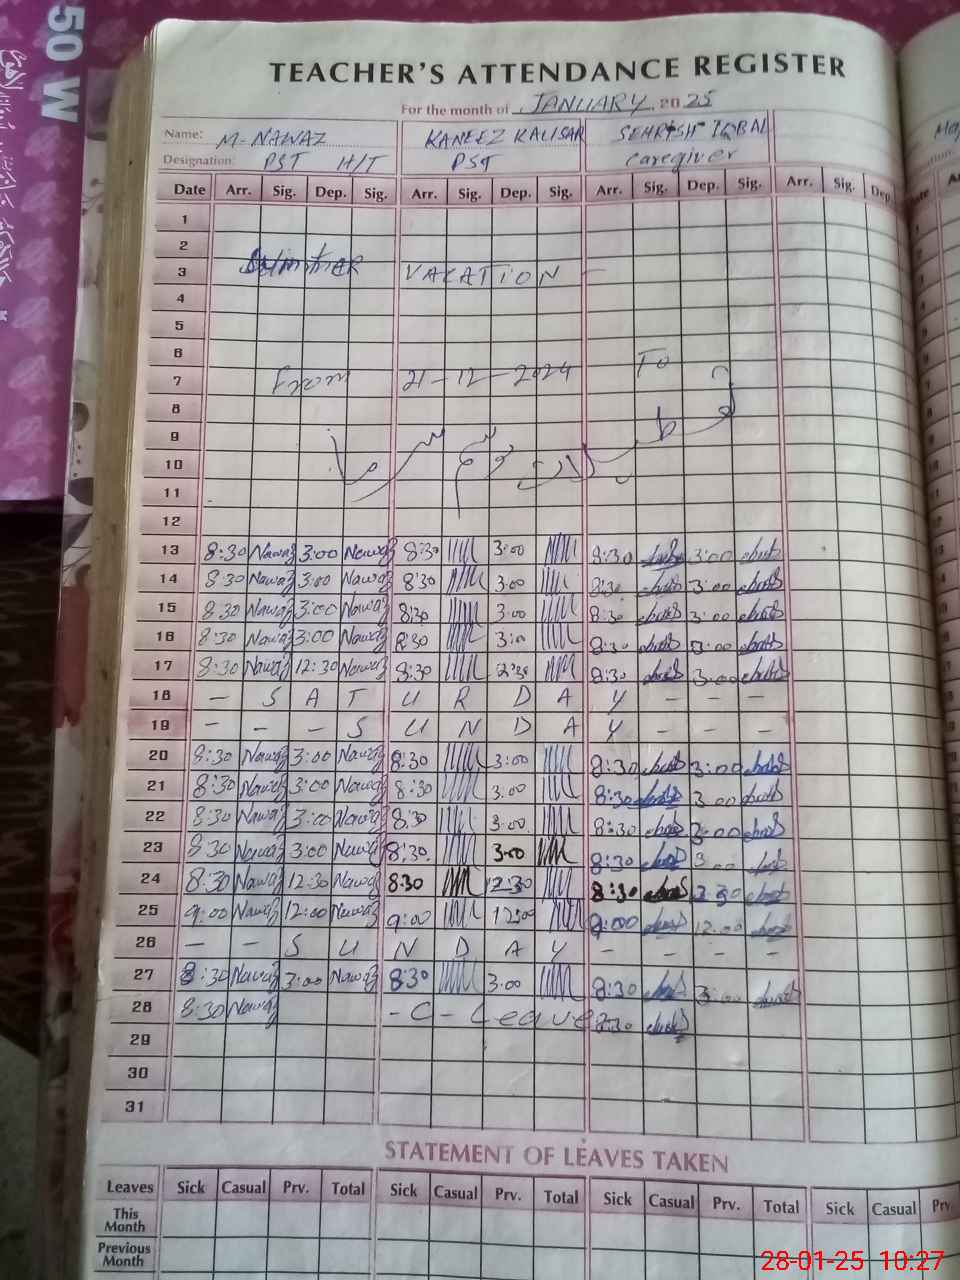 50 W
TEACHER'S ATTENDANCE REGISTER
For the month of JANUARY 2025
Name: M-NAWAZ KANEEZ KALISAR SEHRISH IQBAL
Designation: PST H/T PST caregiver
Date Arr. Sig. Dep. Sig. Arr. Sig. Dep. Sig. Arr. Sig. Dep. Sig. Arr. Sig. Dep.
1
2
3 VACATION -
4
5
6
7 From 21-12-2024 To
8
9
10
11
12
13 8:30 Nawaz 3:00 Nawaz 8:30 3:00 8:30 3:00
14 8:30 Nawaz 3:00 Nawaz 8:30 3:00 8:30 3:00
15 8:30 Nawaz 3:00 Nawaz 8:30 3:00 8:30 3:00
16 8:30 Nawaz 3:00 Nawaz 8:30 3:00 8:30 3:00
17 8:30 Nawaz 12:30 Nawaz 8:30 12:30 8:30 3:00
18 - S A T U R D A Y - - -
19 - - - S U N D A Y - - -
20 8:30 Nawaz 3:00 Nawaz 8:30 3:00 8:30 3:00
21 8:30 Nawaz 3:00 Nawaz 8:30 3:00 8:30 3:00
22 8:30 Nawaz 3:00 Nawaz 8:30 3:00 8:30 3:00
23 8:30 Nawaz 3:00 Nawaz 8:30 3:00 8:30 3:00
24 8:30 Nawaz 12:30 Nawaz 8:30 12:30 8:30
25 9:00 Nawaz 12:00 Nawaz 9:00 12:00 9:00 12:00
26 - - S U N D A Y - - - -
27 8:30 Nawaz 3:00 Nawaz 8:30 3:00 8:30 3:00
28 8:30 Nawaz - C - Leave 8:30
29
30
31
STATEMENT OF LEAVES TAKEN
Leaves Sick Casual Prv. Total Sick Casual Prv. Total Sick Casual Prv. Total Sick Casual Prv.
This Month
Previous Month
28-01-25 10:27